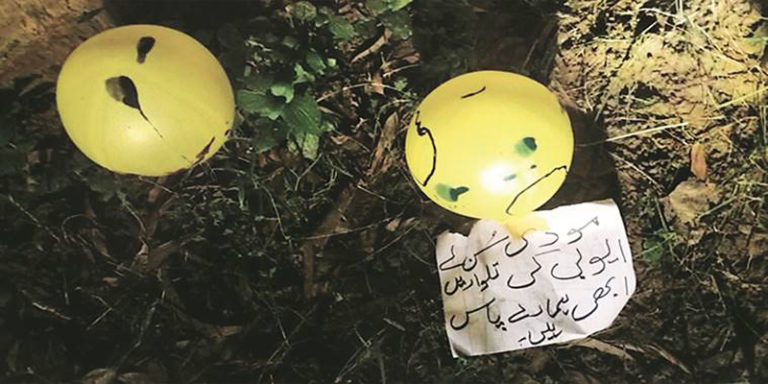 مودی سُن لے
ایوبی کی تلواریں
ابھی ہمارے پاس
ہیں۔